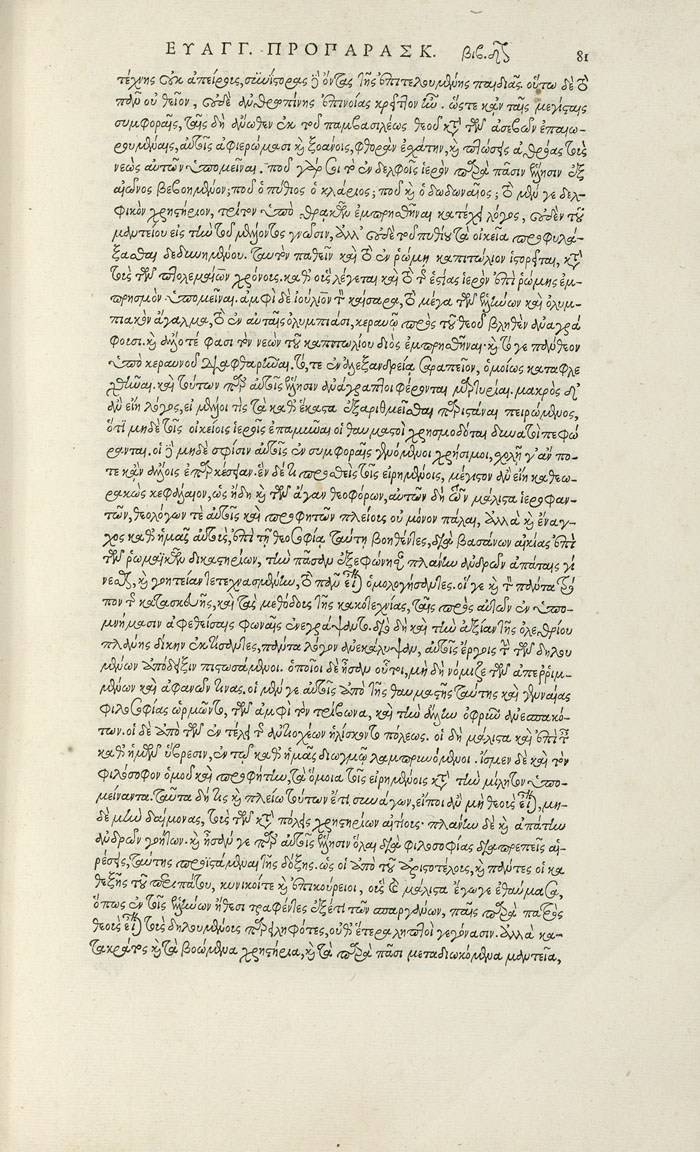 ΕΥΑΓΓ. ΠΡΟΠΑΡΑΣΚ. βιβ. 81
τέχνης οὐκ ἀπείροις, συνίστορας ἢ ὄντας τῆς ἐπιτελουμένης παιδιᾶς. οὕτω δὲ τὸ
πᾶν οὐ θεῖον, οὐδὲ ἀνθρωπίνης ἐπινοίας κρεῖττον ἦν. ὥστε κἀν ταῖς μεγίσταις
συμφοραῖς, ταῖς δὴ ἄνωθεν ἐκ τοῦ παμβασιλέως θεοῦ κατὰ τῶν ἀσεβῶν ἐπαιω-
ρουμέναις, αὐτοῖς ἀφιερώμασι καὶ ξοάνοις, φθορὰν ἐσχάτην, καὶ πτώσεις ἀθρόας τοὺς
νεὼς αὐτῶν ὑπομεῖναι. ποῦ γάρ σοι τὸ ἐν δελφοῖς ἱερὸν παρὰ πᾶσιν ἕλλησιν ἐξ
αἰῶνος βεβοημένον; ποῦ ὁ πύθιος ὁ κλάριος; ποῦ καὶ ὁ δωδωναῖος; τὸ μέν γε δελ-
φικὸν χρηστήριον, τρίτον ὑπὸ θρακῶν ἐμπρησθῆναι κατέχει λόγος, οὐδὲν τοῦ
μαντείου εἰς τὴν τοῦ μέλλοντος γνῶσιν, ἀλλ' οὐδὲ τοῦ πυθίου τὰ οἰκεῖα προφυλά-
ξασθαι δεδυνημένου. ταυτὸν παθεῖν καὶ τὸ ἐν ῥώμῃ καπιτώλιον ἱστορεῖται, κατὰ
τοὺς τῶν πτολεμαίων χρόνους. καθ' οὓς λέγεται καὶ τὸ τῆς ἑστίας ἱερὸν ἐπὶ ῥώμης ἐμ-
πρησμὸν ὑπομεῖναι. ἀμφὶ δὲ ἰούλιον τὸν καίσαρα, τὸ μέγα τῶν ἑλλήνων καὶ ὀλυμ-
πιακὸν ἄγαλμα, τὸ ἐν αὐταῖς ὀλυμπιάσι, κεραυνῷ πρὸς τοῦ θεοῦ βληθὲν ἀναγρά
φουσι. καὶ ἄλλοτέ φασι τὸν νεὼν τοῦ καπιτωλίου διὸς ἐμπρησθῆναι. καὶ τό γε πάνθεον
ὑπὸ κεραυνοῦ διαφθαρῆναι. τό, τε ἐν ἀλεξανδρείᾳ σαραπεῖον, ὁμοίως καταφλε
χθῆναι. καὶ τούτων παρ' αὐτοῖς ἕλλησιν ἀνάγραπτοι φέρονται μαρτυρίαι. μακρὸς δ'
ἂν εἴη λόγος, εἰ μέλλοι τις τὰ καθ' ἕκαστα ἐξαριθμεῖσθαι παριστάναι πειρώμενος,
ὅτι μηδὲ τοῖς οἰκείοις ἱεροῖς ἐπαμῦναι οἱ θαυμαστοὶ χρησμοδόται δυνατοὶ πεφώ
ρανται. οἱ δὲ μηδὲ σφίσιν αὐτοῖς ἐν συμφοραῖς γενόμενοι χρήσιμοι, σχολῇ γ' ἄν πο-
τε κἂν ἄλλοις ἐπαρκέσαιεν. ἓν δέ τις προσθεὶς τοῖς εἰρημένοις, μέγιστον ἂν εἴη καθεω-
ρακὼς κεφάλαιον, ὡς ἤδη καὶ τῶν ἄγαν θεοφόρων, αὐτῶν δὴ ὧν μάλιστα ἱεροφαν-
τῶν, θεολόγων τε αὐτοῖς καὶ προφητῶν πλείους οὐ μόνον πάλαι, ἀλλὰ καὶ ἔναγ-
χος καθ' ἡμᾶς αὐτοὺς, ἐπὶ τῇ θεοσοφίᾳ ταύτῃ βοηθέντες, διὰ βασάνων αἰκίας ἐπὶ
τῶν ῥωμαϊκῶν δικαστηρίων, τὴν πᾶσαν ἐξεφώνησαν πλάνην ἀνδρῶν ἀπάταις γί
νεσθαι, καὶ γοητείαν τετεχνασμένην, τὸ πᾶν εἶναι ὁμολογήσαντες. οἵ γε καὶ τὸν πάντα τρό
πον τῆς κατασκευῆς, καὶ τὰς μεθόδους τῆς κακοτεχνίας, ταῖς πρὸς αὐτῶν ἐν ὑπο-
μνήμασιν ἀφεθείσαις φωναῖς ἐνεγράψαντο. διὸ δὴ καὶ τὴν ἀξίαν τῆς ὀλεθρίου
πλάνης δίκην ἐκτίσαντες, πάντα λόγον ἀνεκάλυψαν, αὐτοῖς ἔργοις τὴν τῶν δηλου
μένων ἀπόδειξιν πιστωσάμενοι. ὁποῖοι δὲ ἦσαν οὗτοι, μὴ δὴ νόμιζε τῶν ἀπερριμ-
μένων καὶ ἀφανῶν τινας. οἱ μέν γε αὐτοῖς ἀπὸ τῆς θαυμαστῆς ταύτης καὶ γενναίας
φιλοσοφίας ὡρμῶντο, τῶν ἀμφὶ τὸν τρίβωνα, καὶ τὴν ἄλλην ὀφρὺν ἀνεσπακό-
των. οἱ δὲ ἀπὸ τῶν ἐν τέλει τῆς ἀντιοχέων ἡλίσκοντο πόλεως. οἱ δὴ μάλιστα καὶ ἐπὶ τῇ
καθ' ἡμῶν ὕβρει, ἐν τῷ καθ' ἡμᾶς διωγμῷ λαμπρυνόμενοι. ἴσμεν δὲ καὶ τὸν
φιλόσοφον ὁμοῦ καὶ προφήτην, τὰ ὅμοια τοῖς εἰρημένοις κατὰ τὴν μίλητον ὑπο-
μείναντα. ταῦτα δή τις καὶ πλείω τούτων ἔτι συνάγων, εἴποι ἂν μὴ θεοὺς εἶναι, μη-
δὲ μὴν δαίμονας, τοὺς τῶν κατὰ πόλεις χρηστηρίων αἰτίους· πλάνην δὲ καὶ ἀπάτην
ἀνδρῶν γοήτων. καὶ ἦσάν γε παρ' αὐτοῖς ἕλλησιν ὅλαι διὰ φιλοσοφίας διαπρεπεῖς αἱ-
ρέσεις, ταύτης προϊστάμεναι τῆς δόξης. ὡς οἱ ἀπὸ τοῦ ἀριστοτέλους, καὶ πάντες οἱ κα
θεξῆς τοῦ περιπάτου, κυνικοί τε καὶ ἐπικούρειοι, οὓς καὶ μάλιστα ἔγωγε ἐθαύμασα,
ὅπως ἐν τοῖς ἑλλήνων ἤθεσι τραφέντες ἐξέτι τῶν σπαργάνων, παῖς παρὰ πατρὸς
θεοὺς εἶναι τοὺς δηλουμένους παρειληφότες, οὐχ' ἕτεροι ληπτοὶ γεγόνασιν. ἀλλὰ κα-
τακράτος καὶ τὰ βοώμενα χρηστήρια, καὶ τὰ παρὰ πᾶσι μεταδιωκόμενα μαντεῖα,